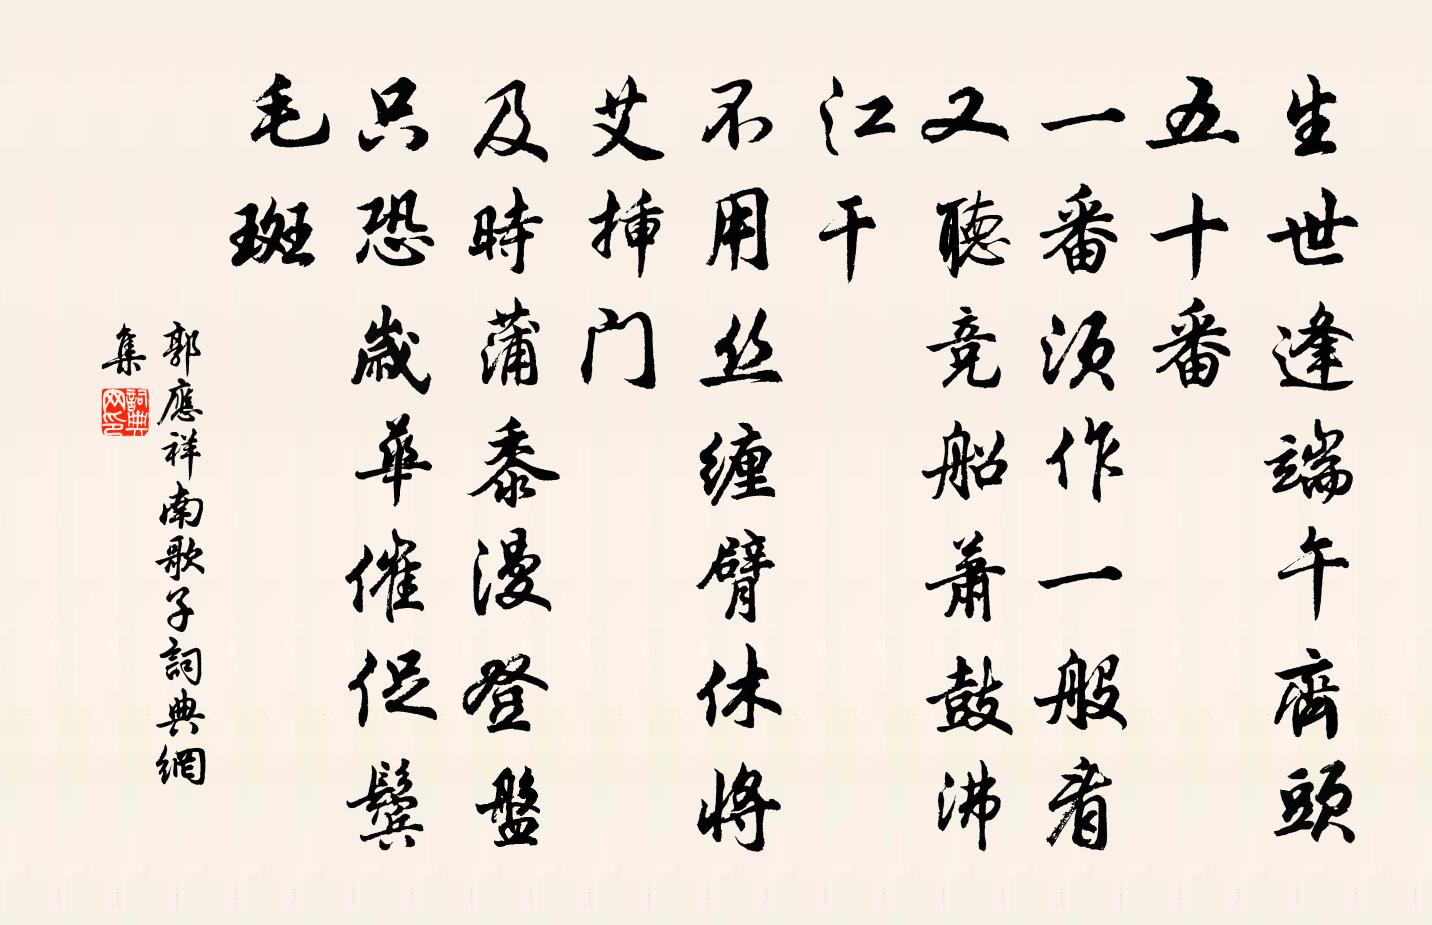 生世逢端午齊頭
五十番
一番須作一般看
又聽競船蕭鼓沸
江干
不用丝纏臂休將
艾挿门
及時蒲黍漫登盤
只恐歲華催促鬓
毛斑
郭應祥南歌子詞典網
集
詞典
网印